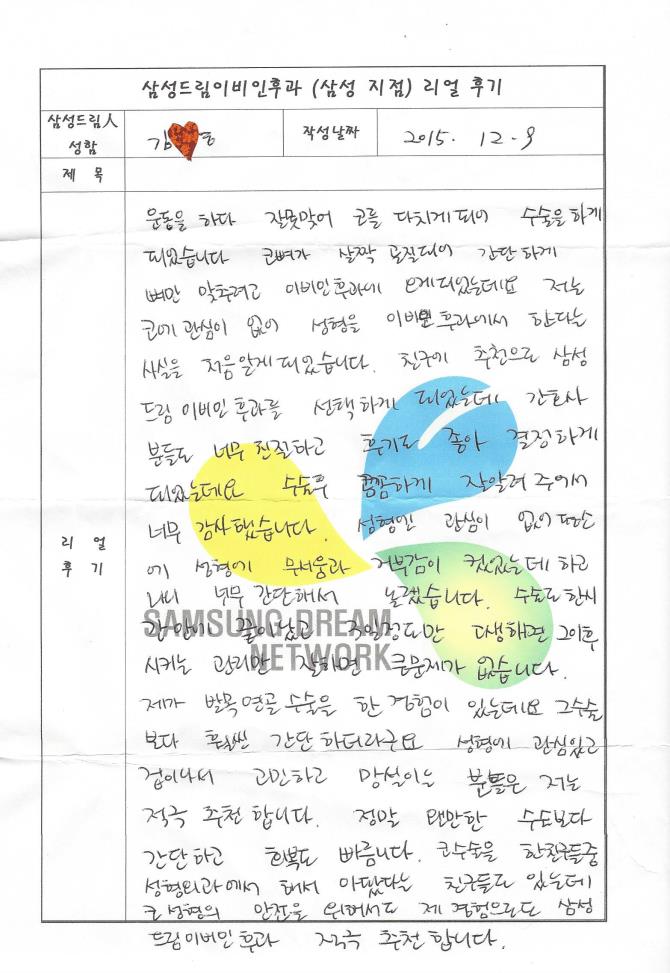 삼성드림이비인후과 (삼성 지점) 리얼 후기
삼성드림人
성함
김 동
작성날짜
2015. 12. 9
제 목
리 얼
후 기
운동을 하다 잘못맞어 코를 다치게되어 수술을 하게
되었습니다 코뼈가 살짝 골절되어 간단 하게
뼈만 맞추려고 이비인후과에 오게되었는데요 저는
코에 관심이 없어 성형을 이비인후과에서 한다는
사실을 처음알게 되었습니다. 친구에 추천으로 삼성
드림 이비인후과를 선택하게 되었는데 간호사
분들도 너무 친절하고 후기도 좋아 결정하게
되었는데요 수술후 꼼꼼하게 잘알려 주어서
너무 감사했습니다. 성형엔 관심이 없어
에 성형에 무서움과 거부감이 컸었는데 하고
나니 너무 간단해서 놀랬습니다. 수술도 한시
끝이났고 고생하면 그이후
시키는 관리만 잘하면 큰문제가 없습니다.
SAMSUNG DREAM
NETWORK
제가 발목연골 수술을 한 경험이 있는데요 그수술
보다 훨씬 간단 하더라구요 성형에 관심있고
겁이나서 고민하고 망설이는 분들은 저는
적극 추천 합니다. 정말 왠만한 수술보다
간단하고 회복도 빠릅니다. 코수술을 한친구들중
성형외과에서 해서 아팠다는 친구들도 있는데
코 성형의 안전을 위해서도 제 경험으로도 삼성
드림이비인후과 적극 추천 합니다.